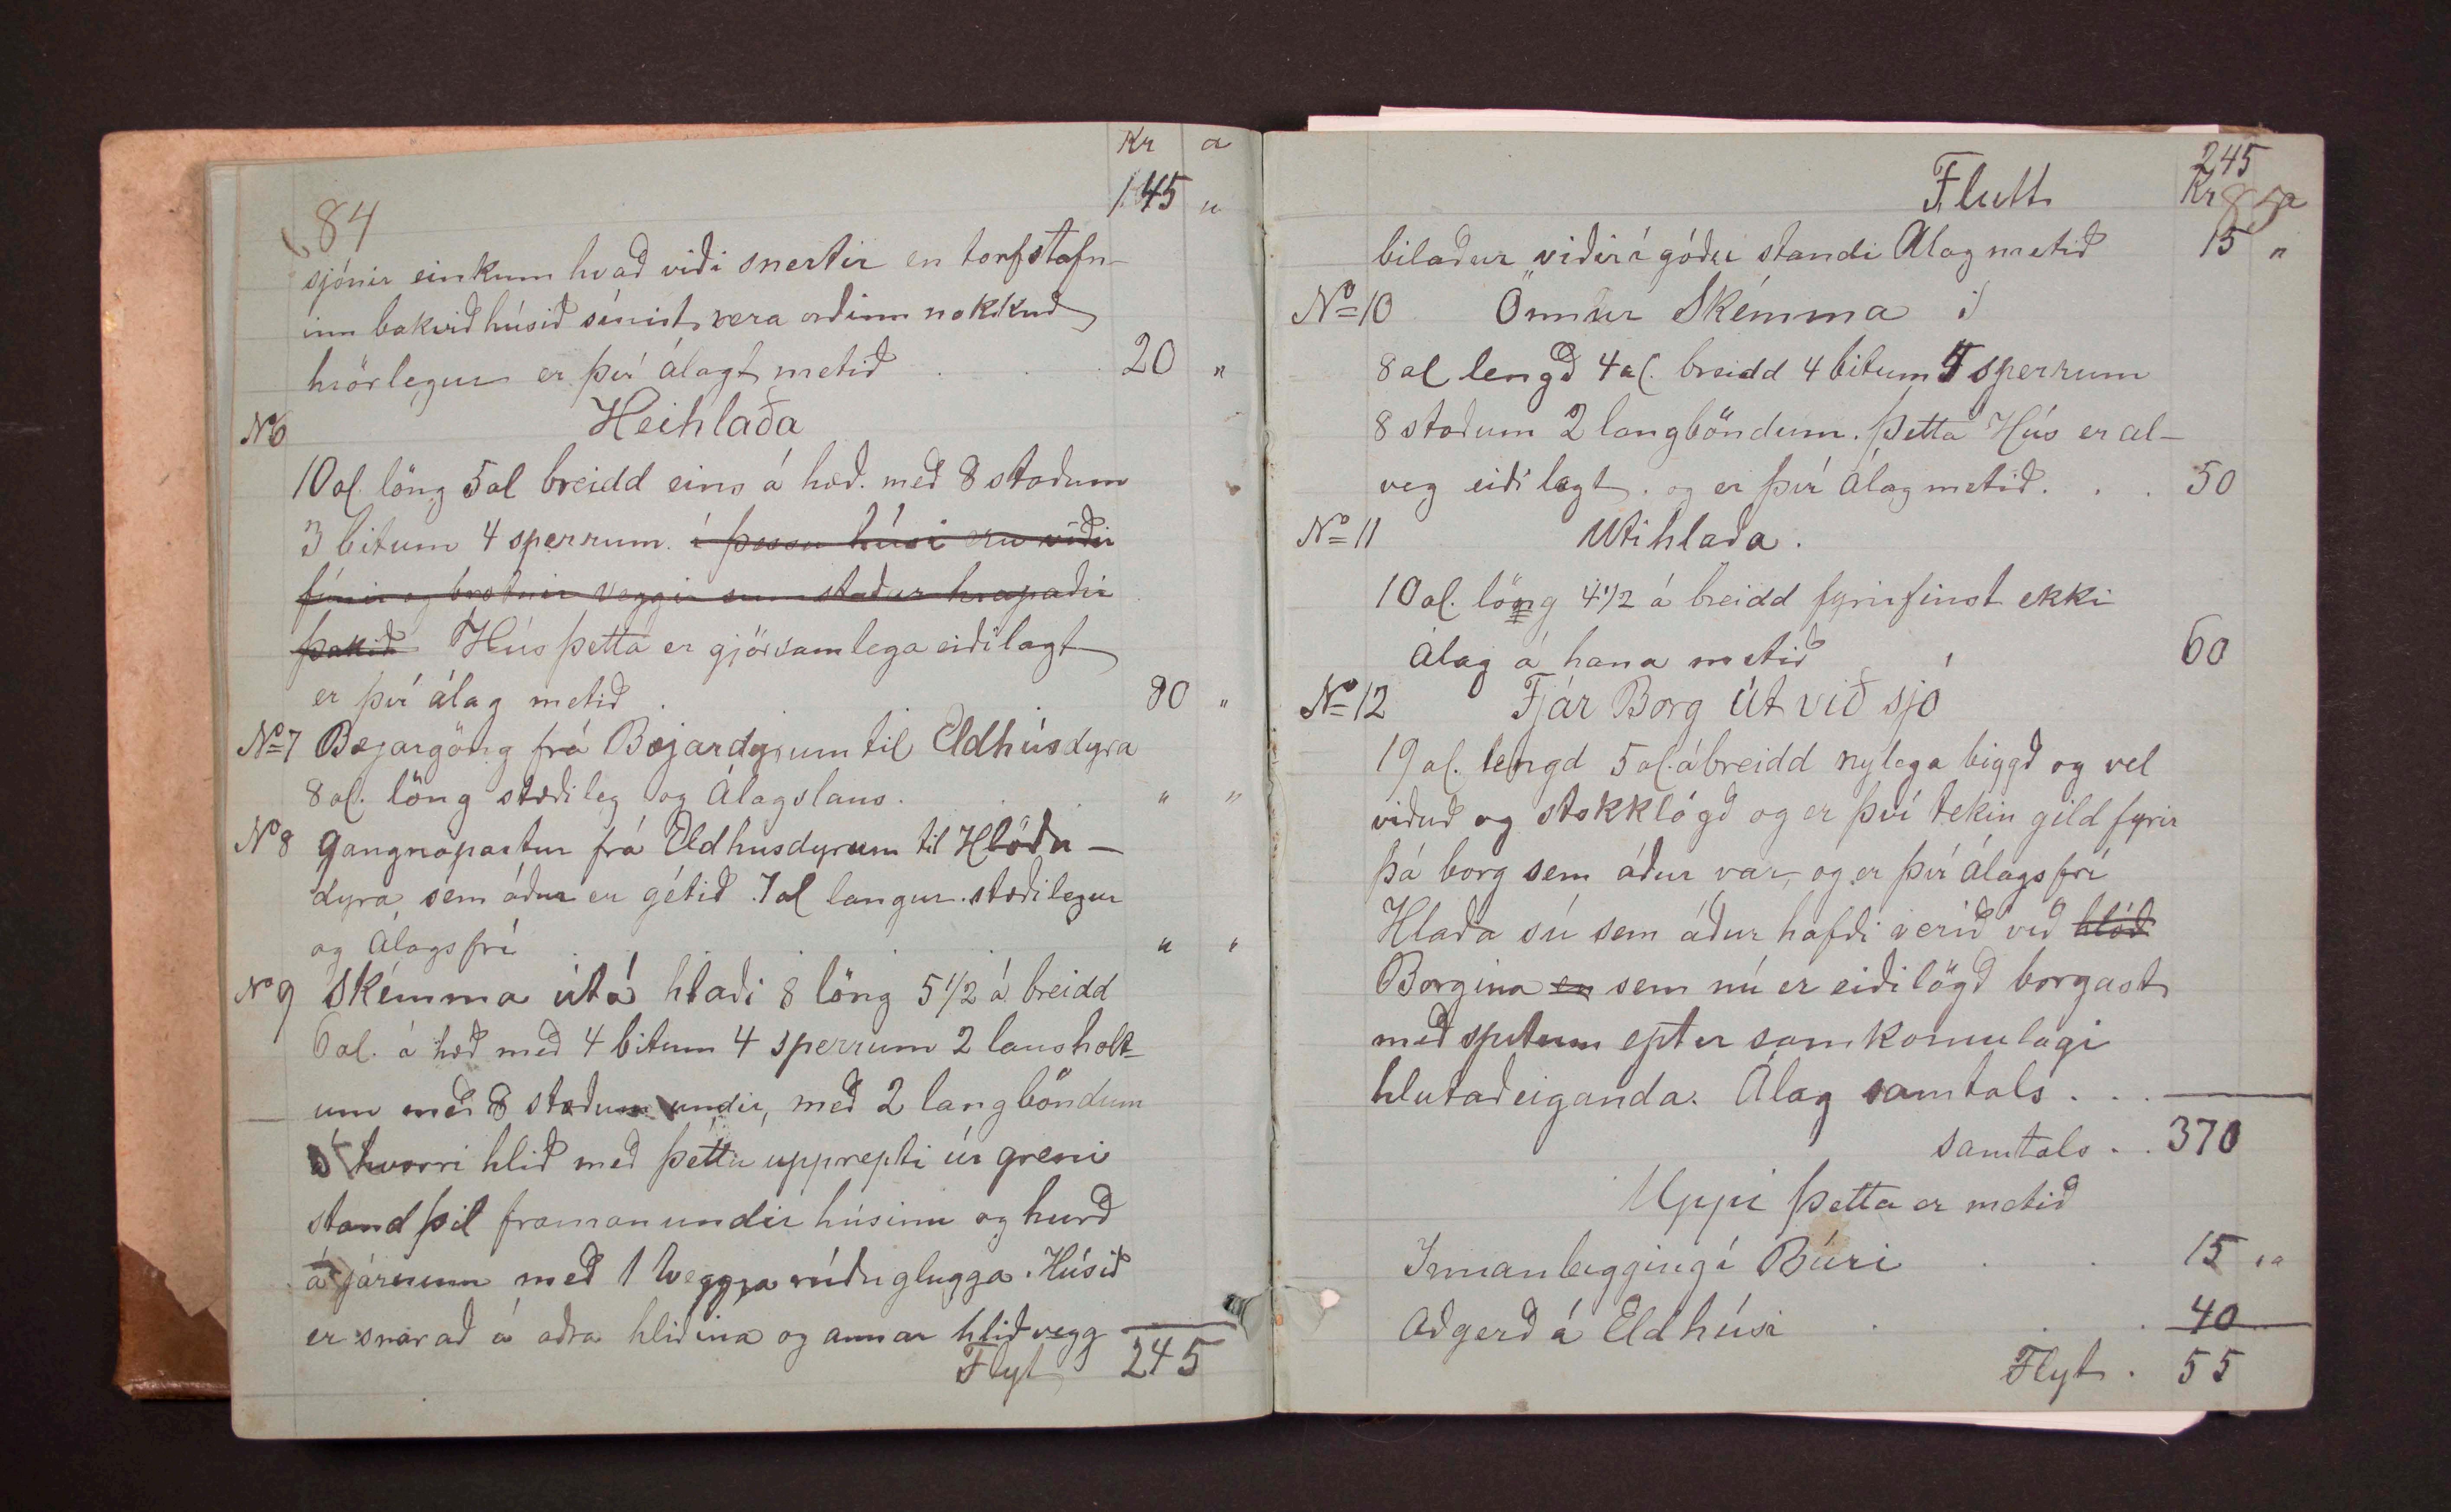 Kr a
145 "
84
sjónir einkum hvað viði snertir en torfstafn-
inn bakvið húsið sínist vera orðinn nokkuð
hrörlegur er því álagt metið . . . 20 "
No 6 Heihlaða
10 al. löng 5 al breidd eins á hæð. með 8 stoðum
3 bitum 4 sperrum. í þessu húsi eru viðir
fúnir og brotnir veggir sumstaðar hrapaðir
þakið Hús þetta er gjörsamlega eiðilagt
er því álag metið . . 80 "
No 7 Bæjargöng frá Bæjardyrum til Eldhúsdyra
8 al. löng stæðileg og Álagslaus. . . " "
No 8 gangnapartur frá Eldhusdyrum til Hlöðu-
dyra sem áður er gétið 7 al langur. stæðilegur
og Álagsfrí . . . . . " "
No 9 Skémma útá hlaði 8 löng 5 1/2 á breidd
6 al. á hæð með 4 bitum 4 sperrum 2 lausholt-
um með 8 stoðum undir, með 2 langböndum
á hvorri hlið með þettu upprepti úr greni
stand þil framan undir húsinu og hurð
á járnum með 1 veggja rúðu glugga. Húsið
er snarað á aðra hliðina og annar hliðvegg
Flyt 245
245
Flutt Kr 85 a
bilaður viðir í góðu standi Álag metið 15 "
No 10 Önnur Skémma
8 al lengð 4 al. breidd 4 bitum 4 sperrum
8 stoðum 2 langböndum. Þetta Hús er al-
veg eiðilagt. og er því Álag metið. . . 50
No 11 Útihlaða.
10 al. löng 4 1/2 á breidd fyrirfinst ekki
Álag á hana metið 60
No 12 Fjár Borg Út við sjó
19 al. lengd 5 al. ábreidd nylega biggð og vel
viðuð og stokklögð og er því tekin gild fyrir
þá borg sem áður var, og er því Álagsfrí
Hlaða sú sem áður hafði verið við hlöð
Borgina en sem nú er eiðilögð borgast
með spitum epter samkomulagi
hlutaðeiganda. Álag samtals . . .
samtals . . 370
Uppi þetta er metið
Innanleggingí Búri . . 15 "
Aðgerð á Eldhúsi . . . 40
Flyt . 55